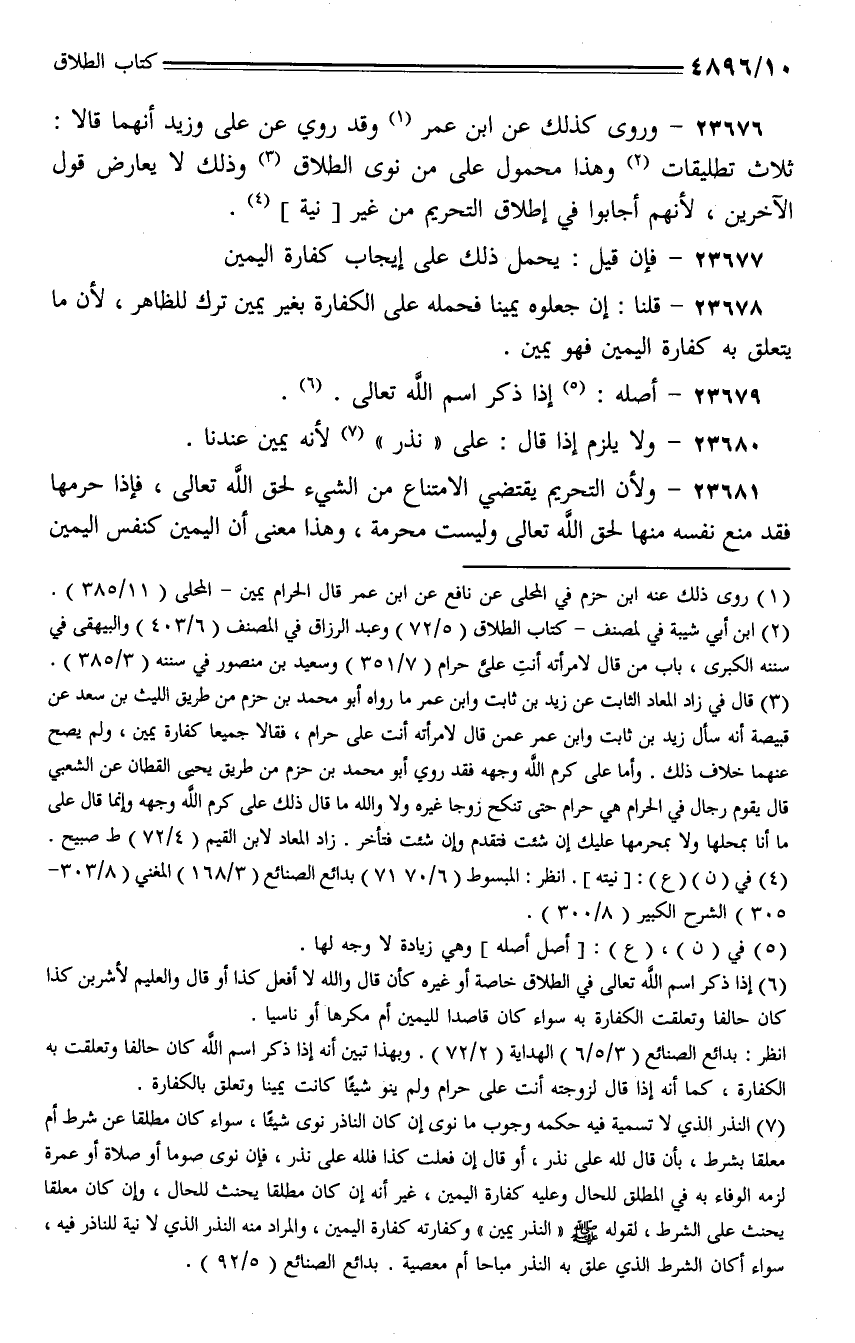 ٤٨٩٦/١٠ كتاب الطلاق
٢٣٦٧٦ - وروى كذلك عن ابن عمر (١) وقد روي عن على وزيد أنهما قالا :
ثلاث تطليقات (٢) وهذا محمول على من نوى الطلاق (٣) وذلك لا يعارض قول
الآخرين ، لأنهم أجابوا في إطلاق التحريم من غير [ نية ] (٤) .
٢٣٦٧٧ - فإن قيل : يحمل ذلك على إيجاب كفارة اليمين
٢٣٦٧٨ - قلنا : إن جعلوه يمينا فحمله على الكفارة بغير يمين ترك للظاهر ، لأن ما
يتعلق به كفارة اليمين فهو يمين .
٢٣٦٧٩ - أصله : (٥) إذا ذكر اسم اللَّه تعالى . (٦) .
٢٣٦٨٠ - ولا يلزم إذا قال : على « نذر » (٧) لأنه يمين عندنا .
٢٣٦٨١ - ولأن التحريم يقتضي الامتناع من الشيء لحق اللَّه تعالى ، فإذا حرمها
فقد منع نفسه منها لحق اللَّه تعالى وليست محرمة ، وهذا معنى أن اليمين كنفس اليمين
(١) روى ذلك عنه ابن حزم في المحلى عن نافع عن ابن عمر قال الحرام يمين - المحلى ( ٣٨٥/١١ ) .
(٢) ابن أبي شيبة في لمصنف - كتاب الطلاق ( ٧٢/٥ ) وعبد الرزاق في المصنف ( ٤٠٣/٦ ) والبيهقى في
سننه الكبرى ، باب من قال لامرأته أنتِ علىَّ حرام ( ٣٥١/٧ ) وسعيد بن منصور في سننه ( ٣٨٥/٣ ) .
(٣) قال في زاد المعاد الثابت عن زيد بن ثابت وابن عمر ما رواه أبو محمد بن حزم من طريق الليث بن سعد عن
قبيصة أنه سأل زيد بن ثابت وابن عمر عمن قال لامرأته أنت على حرام ، فقالا جميعا كفارة يمين ، ولم يصح
عنهما خلاف ذلك . وأما على كرم اللَّه وجهه فقد روي أبو محمد بن حزم من طريق يحيى القطان عن الشعبي
قال يقوم رجال في الحرام هي حرام حتى تنكح زوجا غيره ولا والله ما قال ذلك على كرم اللَّه وجهه وإنما قال على
ما أنا بمحلها ولا بمحرمها عليك إن شئت فتقدم وإن شئت فتأخر . زاد المعاد لابن القيم ( ٧٢/٤ ) ط صبيح .
(٤) في ( ن ) ( ع ) : [ نيته ] . انظر : المبسوط ( ٧٠/٦ ٧١ ) بدائع الصنائع ( ١٦٨/٣ ) المغني ( ٣٠٣/٨-
٣٠٥ ) الشرح الكبير ( ٣٠٠/٨ ) .
(٥) في ( ن ) ، ( ع ) : [ أصل أصله ] وهي زيادة لا وجه لها .
(٦) إذا ذكر اسم اللَّه تعالى في الطلاق خاصة أو غيره كأن قال والله لا أفعل كذا أو قال والعليم لأشربن كذا
كان حالفا وتعلقت الكفارة به سواء كان قاصدا لليمين أم مكرها أو ناسيا .
انظر : بدائع الصنائع ( ٦/٥/٣ ) الهداية ( ٧٢/٢ ) . وبهذا تبين أنه إذا ذكر اسم اللَّه كان حالفا وتعلقت به
الكفارة ، كما أنه إذا قال لزوجته أنت على حرام ولم ينو شيئًا كانت يمينا وتعلق بالكفارة .
(٧) النذر الذي لا تسمية فيه حكمه وجوب ما نوى إن كان الناذر نوى شيئًا ، سواء كان مطلقا عن شرط أم
معلقا بشرط ، بأن قال لله على نذر ، أو قال إن فعلت كذا فلله على نذر ، فإن نوى صوما أو صلاة أو عمرة
لزمه الوفاء به في المطلق للحال وعليه كفارة اليمين ، غير أنه إن كان مطلقا يحنث للحال ، وإن كان معلقا
يحنث على الشرط ، لقوله ﷺ « النذر يمين » وكفارته كفارة اليمين ، والمراد منه النذر الذي لا نية للناذر فيه ،
سواء أكان الشرط الذي علق به النذر مباحا أم معصية . بدائع الصنائع ( ٩٢/٥ ) .